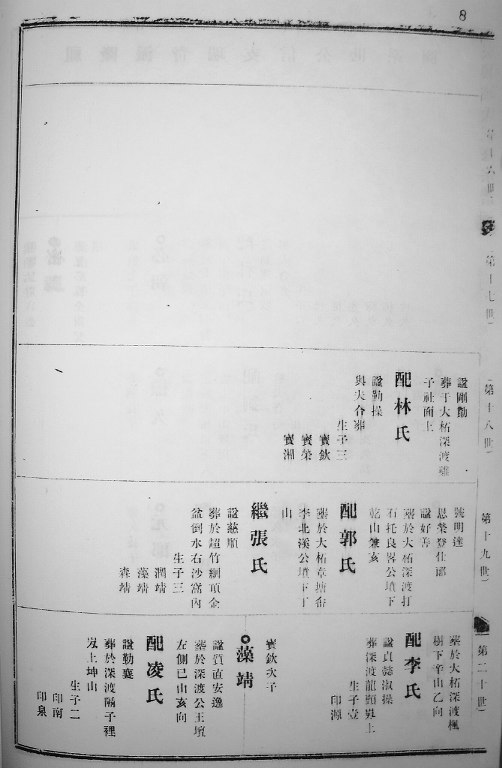 8
第十六世
第十七世
第十八世
諡剛勤
葬于大柘深渡
子社面上
配林氏
諡勤操
與夫合葬
生子三
寶欽
寶榮
寶湘
第十九世
號明達
恩榮登仕郎
諡好善
塟於大柘深渡打
石托良畧公墳下
乾山兼亥
配郭氏
塟於大柘章塘
李北溪公墳下丁
山
繼張氏
諡慈順
葬於超竹網項金
盆倒水右沙窩內
生子三
潤靖
藻靖
森靖
第二十世
塟於大柘深渡楓
樹下辛山乙向
配李氏
諡貞懿淑操
葬深渡龍頸上
生子壹
印源
寶欽次子
藻靖
諡質直安逸
塟於深渡公王壇
左側巳山亥向
配凌氏
諡勤襄
葬於深渡隔子裡
崀上坤山
生子二
印南
印泉